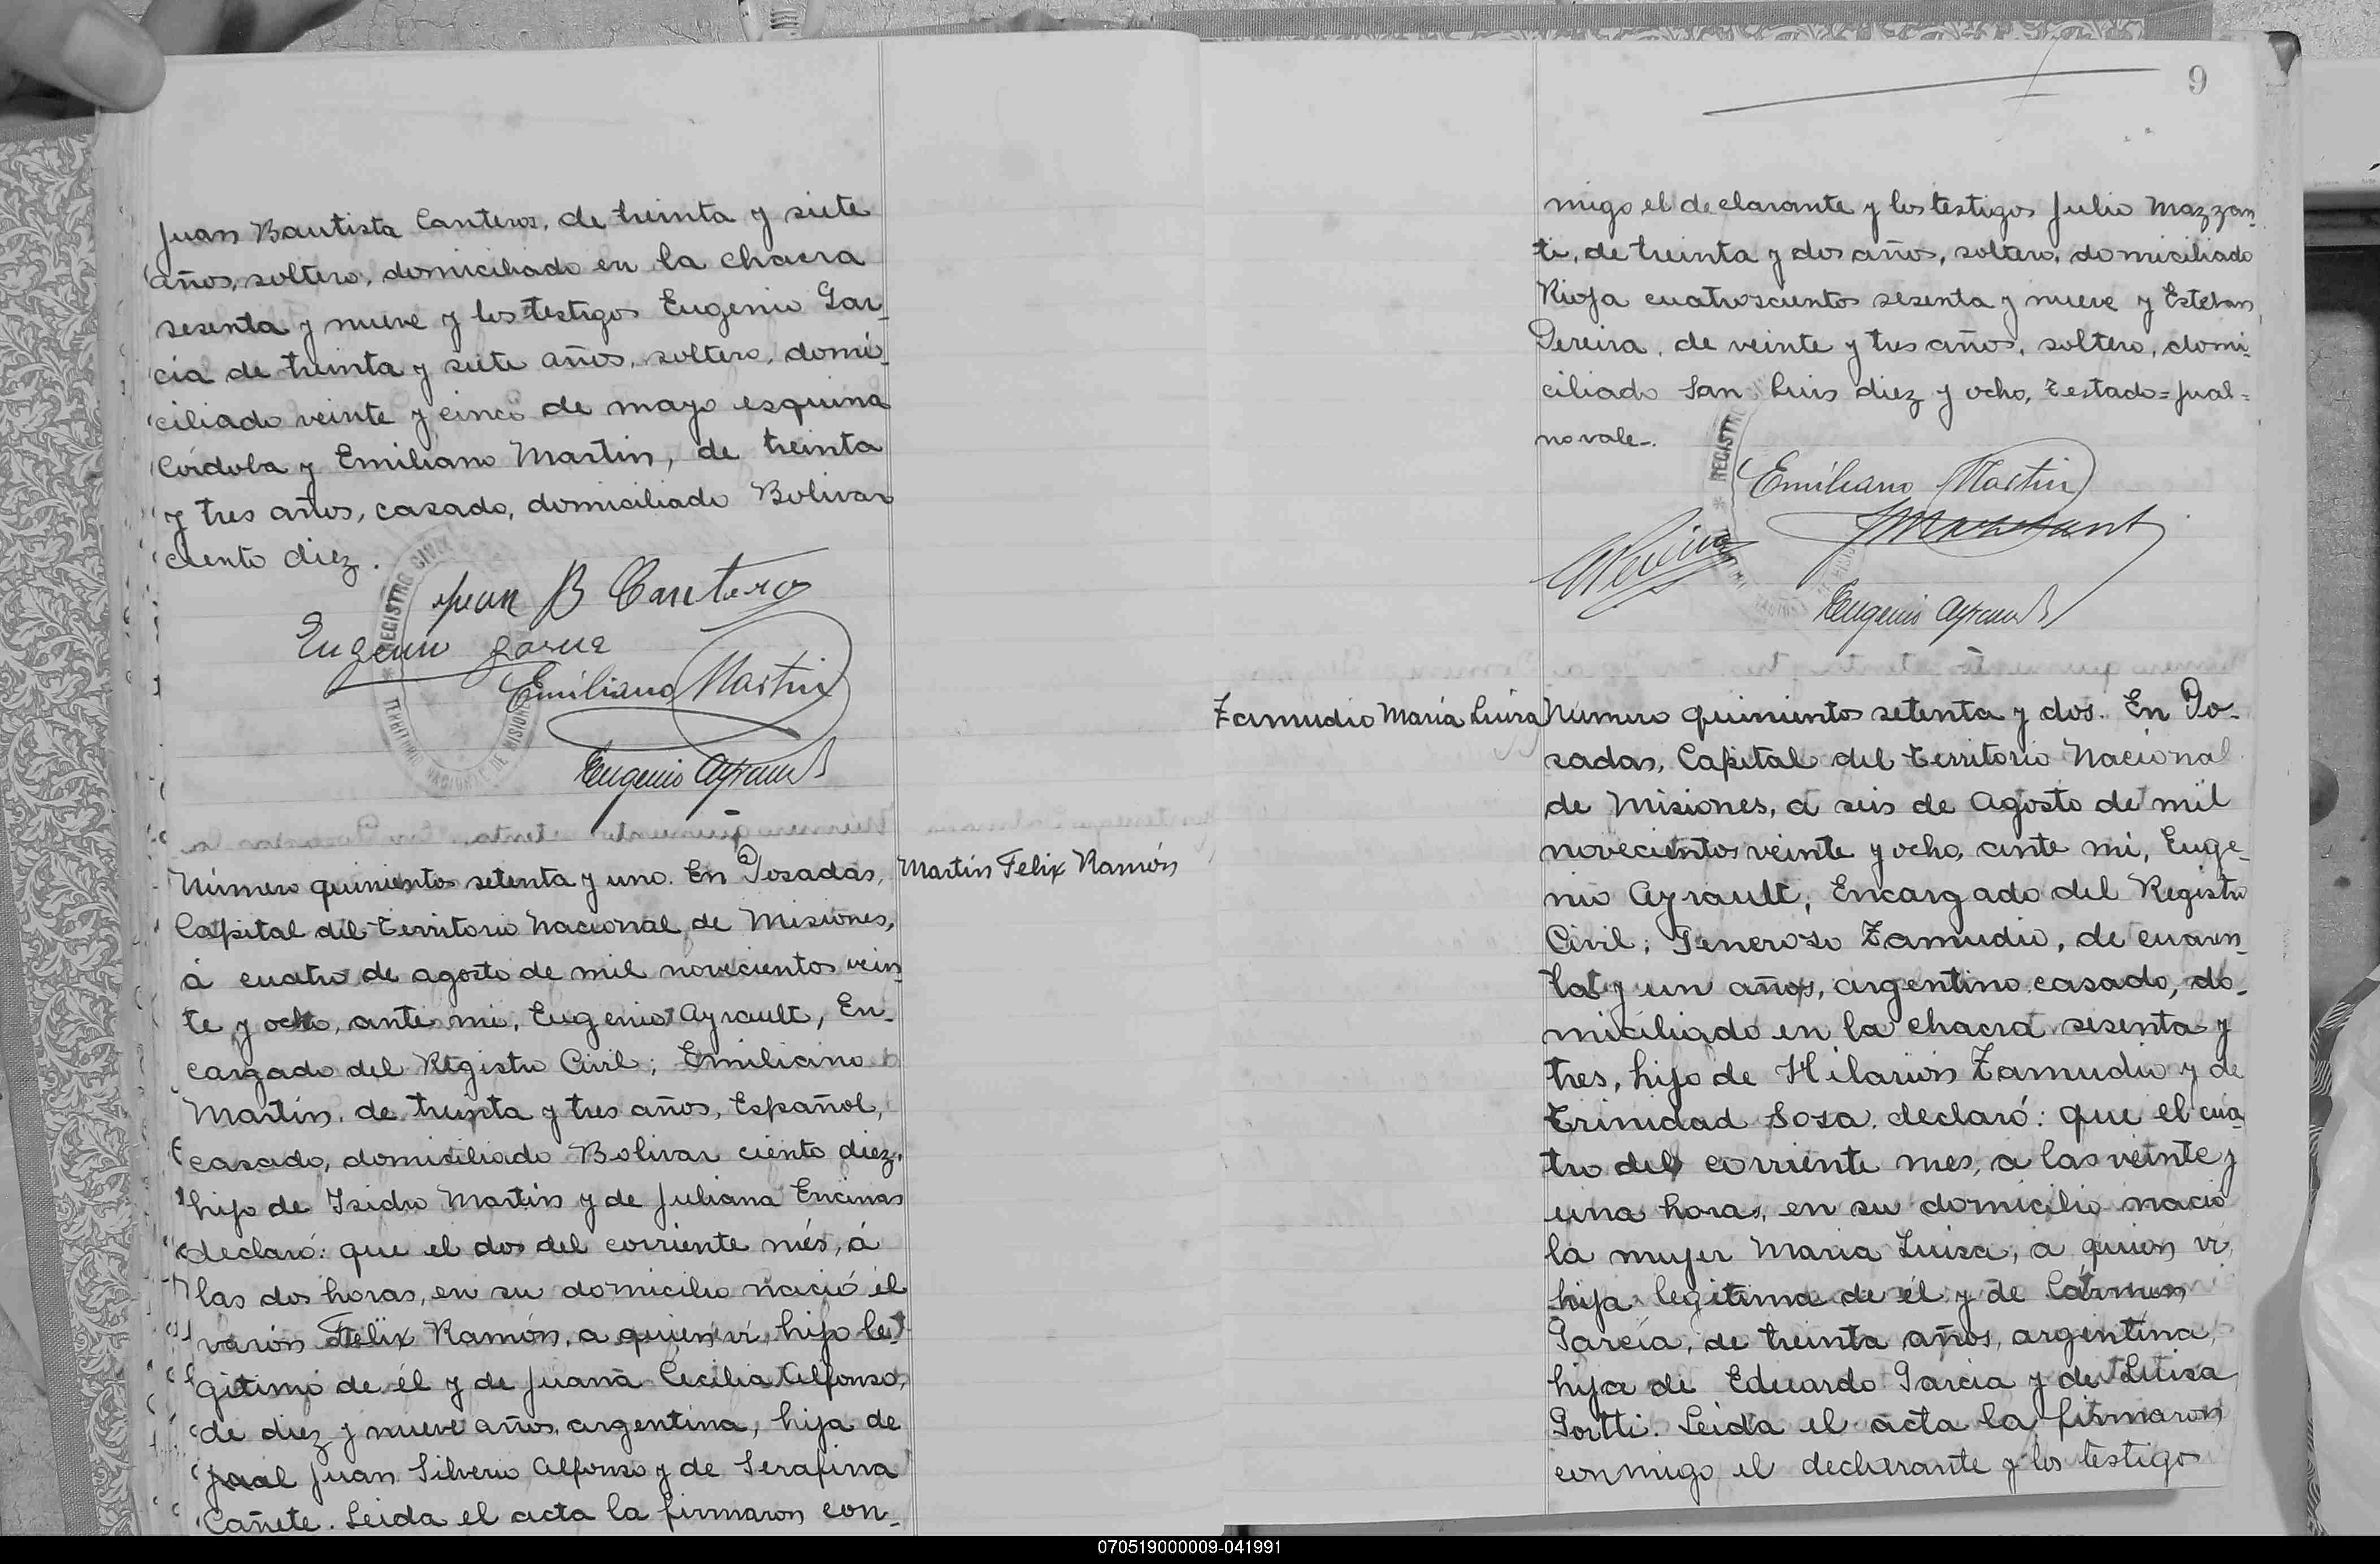 Juan Bautista Canteros, de treinta y siete
años, soltero, domiciliado en la chacra
sesenta y nueve y los testigos Eugenio Gar-
cia de treinta y siete años, soltero, domi-
ciliado veinte y cinco de mayo esquina
Córdoba y Emiliano Martin, de treinta
y tres años, casado, domiciliado Bolivar
ciento diez.
Juan B Canteros
Eugenio Garcia
Emiliano Martin
Eugenio Ayrault
REGISTRO CIVIL
TERRITORIO NACIONAL DE MISIONES
Número quinientos setenta y uno. En Posadas,
Martin Felix Ramón
Capital del Territorio Nacional de Misiones,
á cuatro de agosto de mil novecientos vein-
te y ocho, ante mi, Eugenio Ayrault, En-
cargado del Registro Civil; Emiliano
Martin, de treinta y tres años, Español,
casado, domiciliado Bolivar ciento diez,
hijo de Isidro Martin y de Juliana Encinas
declaró: que el dos del corriente més, á
las dos horas, en su domicilio nació el
varón Felix Ramón, a quien ví, hijo le-
gitimo de él y de Juana Cecilia Alfonso,
de diez y nueve años, argentina, hija de
Jual Juan Silverio Alfonso y de Serafina
Cañete. Leida el acta la firmaron con-
9
migo el declarante y los testigos Julio Mazzan-
ti, de treinta y dos años, soltero, domiciliado
Rioja cuatroscientos sesenta y nueve y Esteban
Pereira, de veinte y tres años, soltero, domi-
ciliado San Luis diez y ocho, Testado=Jual=
no vale-.
REGISTR
Emiliano Martin
Eugenio Ayrault
Zamudio María Luisa
Número quinientos setenta y dos. En Po-
sadas, Capital del Territorio Nacional
de Misiones, á seis de Agosto de mil
novecientos veinte y ocho, ante mi, Euge-
nio Ayrault, Encargado del Registro
Civil; Generoso Zamudio, de cuaren-
ta y un años, argentino, casado, do-
miciliado en la chacra sesenta y
tres, hijo de Hilarión Zamudio y de
Trinidad Sosa, declaró: que el cua-
tro del corriente mes, a las veinte y
una horas, en su domicilio nació
la mujer Maria Luisa, a quien ví,
hija legitima de él y de Cármen
García, de treinta años, argentina,
hija de Eduardo Garcia y de Luisa
Portti. Leida el acta la firmaron
conmigo el declarante y los testigos
070519000009-041991